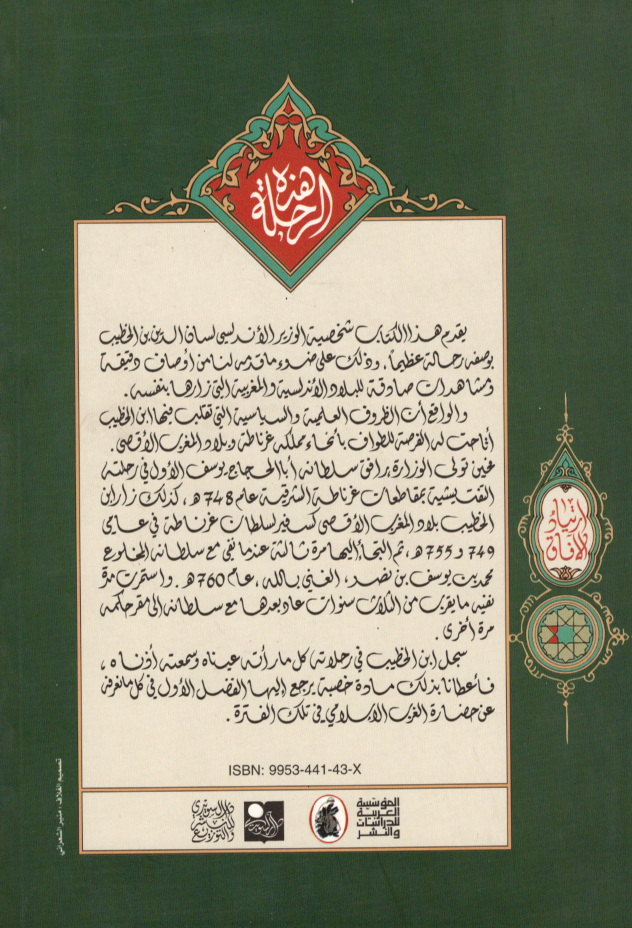 هذه
الرحلة
يقدم هذا الكتاب شخصية الوزير الأندلسي لسان الدين بن الخطيب
بوصفه رحالة عظيماً. وذلك على ضوء ما قدمه لنا من أوصاف دقيقة
ومشاهدات صادقة للبلاد الأندلسية والمغربية التي زارها بنفسه.
والواقع أن الظروف العلمية والسياسية التي تقلب فيها ابن الخطيب
أتاحت له الفرصة للطواف بأنحاء مملكة غرناطة وبلاد المغرب الأقصى.
فحين تولى الوزارة رافق سلطانه أبا الحجاج يوسف الأول في رحلته
التفتيشية بمقاطعات غرناطة الشرقية عام 748 هـ، كذلك زار ابن
الخطيب بلاد المغرب الأقصى كسفير لسلطان غرناطة في عامي
749 و 755 هـ، ثم التجأ إليها مرة ثالثة عندما نفي مع سلطانه المخلوع
محمد بن يوسف بن نصر، الغني بالله، عام 760 هـ. واستمرت مدة
نفيه ما يقرب من الثلاث سنوات عاد بعدها مع سلطانه إلى مقر حكمه
مرة أخرى.
سجل ابن الخطيب في رحلاته كل ما رأته عيناه وسمعته أذناه،
فأعطانا بذلك مادة خصبة يرجع إليها الفضل الأول في كل ما نعرفه
عن حضارة الغرب الإسلامي في تلك الفترة.
ارتياد
الآفاق
ISBN: 9953-441-43-X
المؤسسة
العربية
للدراسات
والنشر
دار السويدي
للنشر
والتوزيع
تصميم الغلاف: منير الشعراني